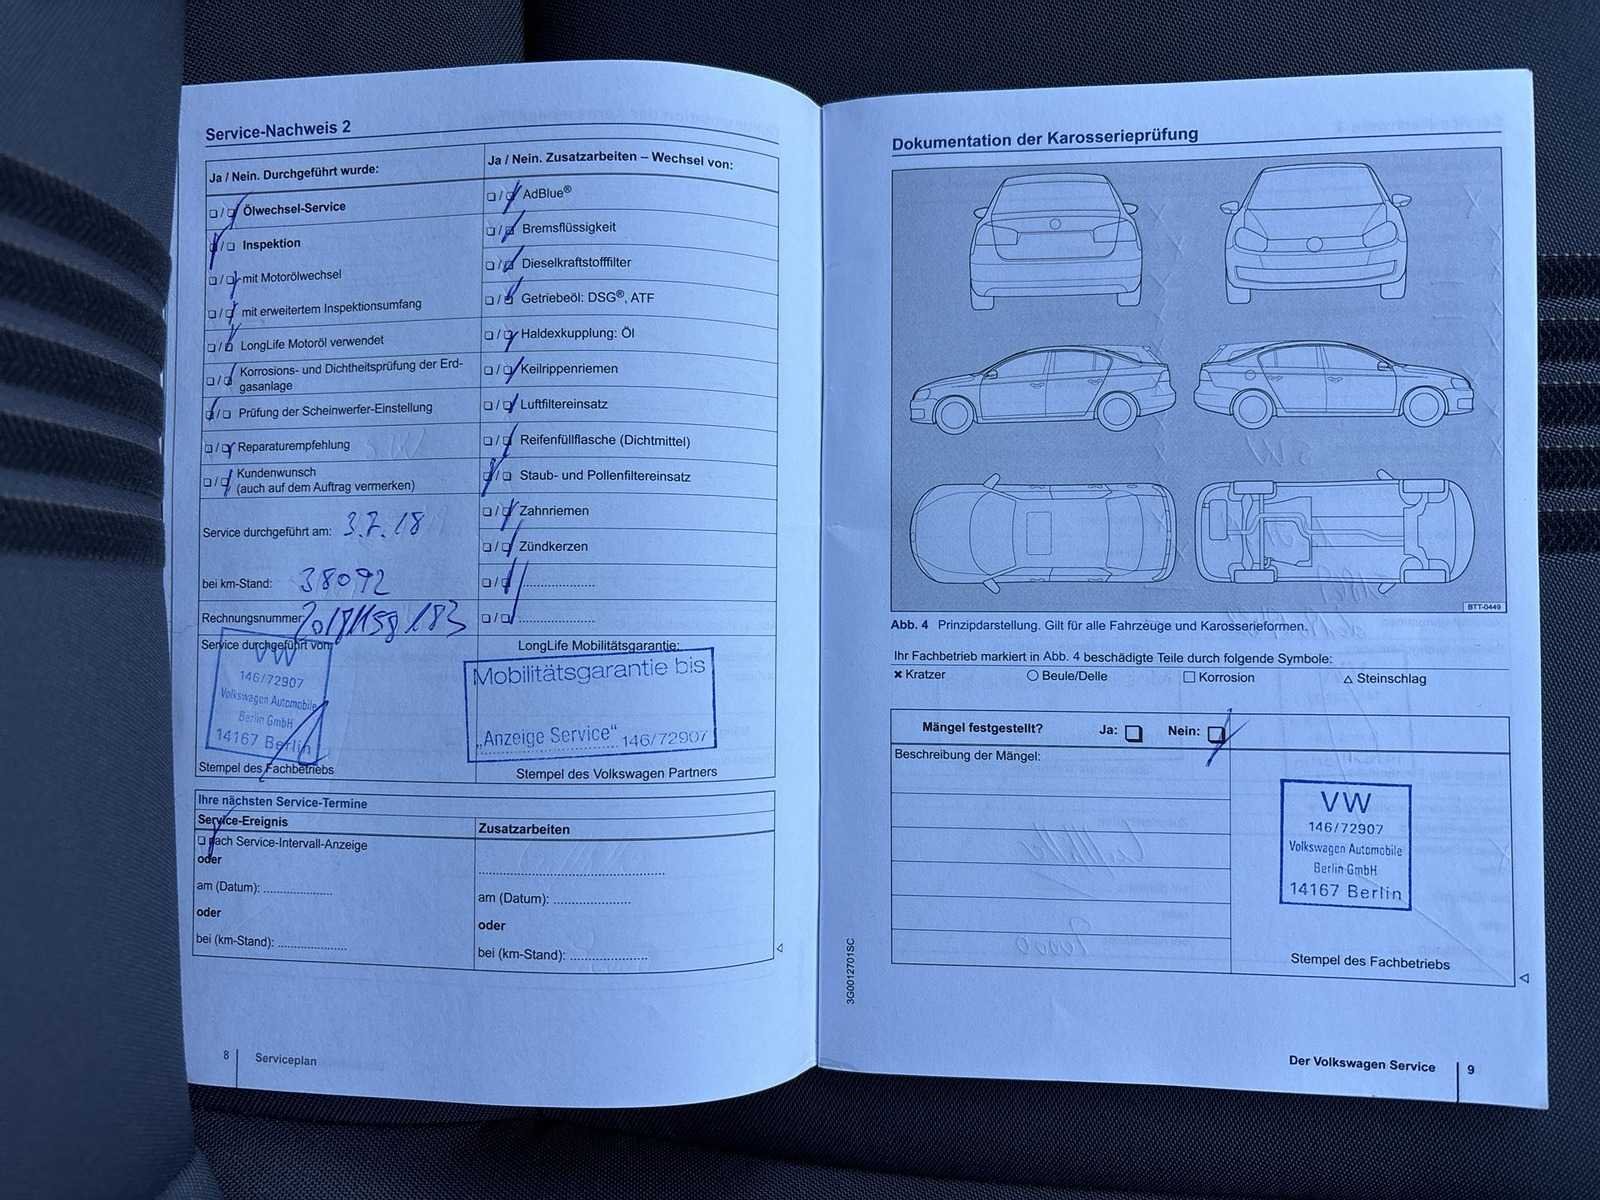 Service-Nachweis 2
Ja / Nein. Durchgeführt wurde:
❏ / ❏ Ölwechsel-Service
❏ / ❏ Inspektion
❏ / ❏ mit Motorölwechsel
❏ / ❏ mit erweitertem Inspektionsumfang
❏ / ❏ LongLife Motoröl verwendet
❏ / ❏ Korrosions- und Dichtheitsprüfung der Erd-
gasanlage
❏ / ❏ Prüfung der Scheinwerfer-Einstellung
❏ / ❏ Reparaturempfehlung
❏ / ❏ Kundenwunsch
(auch auf dem Auftrag vermerken)
Service durchgeführt am: 3.7.18
bei km-Stand: 38092
Rechnungsnummer
Service durchgeführt von:
VW
146/72907
Volkswagen Automobile
Berlin GmbH
14167 Berlin
Stempel des Fachbetriebs
Ja / Nein. Zusatzarbeiten – Wechsel von:
❏ / ❏ AdBlue®
❏ / ❏ Bremsflüssigkeit
❏ / ❏ Dieselkraftstofffilter
❏ / ❏ Getriebeöl: DSG®, ATF
❏ / ❏ Haldexkupplung: Öl
❏ / ❏ Keilrippenriemen
❏ / ❏ Luftfiltereinsatz
❏ / ❏ Reifenfüllflasche (Dichtmittel)
❏ / ❏ Staub- und Pollenfiltereinsatz
❏ / ❏ Zahnriemen
❏ / ❏ Zündkerzen
❏ / ❏ ....................
❏ / ❏ ....................
LongLife Mobilitätsgarantie:
Mobilitätsgarantie bis
„Anzeige Service" 146/72907
Stempel des Volkswagen Partners
Ihre nächsten Service-Termine
Service-Ereignis
❏ nach Service-Intervall-Anzeige
oder
am (Datum): ...................
oder
bei (km-Stand): ...................
Zusatzarbeiten
..................................................
am (Datum): .....................
oder
bei (km-Stand): .....................
8 Serviceplan
Dokumentation der Karosserieprüfung
BTT-0449
Abb. 4 Prinzipdarstellung. Gilt für alle Fahrzeuge und Karosserieformen.
Ihr Fachbetrieb markiert in Abb. 4 beschädigte Teile durch folgende Symbole:
✖ Kratzer ○ Beule/Delle □ Korrosion △ Steinschlag
Mängel festgestellt? Ja: ❏ Nein: ❏
Beschreibung der Mängel:
VW
146/72907
Volkswagen Automobile
Berlin GmbH
14167 Berlin
Stempel des Fachbetriebs
3G0012701SC
Der Volkswagen Service 9